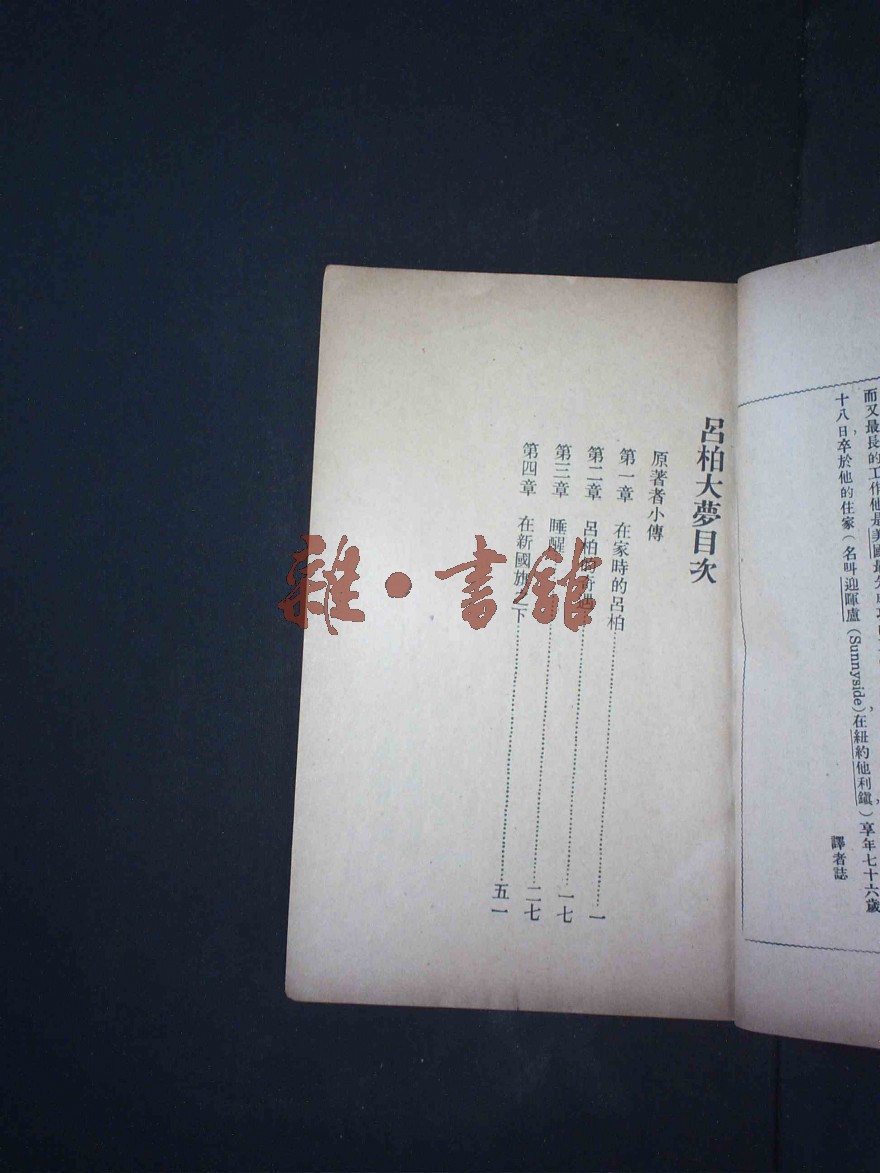 而又最長的工作他是美國最
十八日卒於他的住家(名叫迎暉盧(Sunnyside)在紐約他利鎭)享年七十六歲
譯者誌
呂柏大夢目次
原著者小傳
第一章 在家時的呂柏……一
第二章 呂柏的奇遇……一七
第三章 睡醒……二七
第四章 在新國旗之下……五一
雜·書館